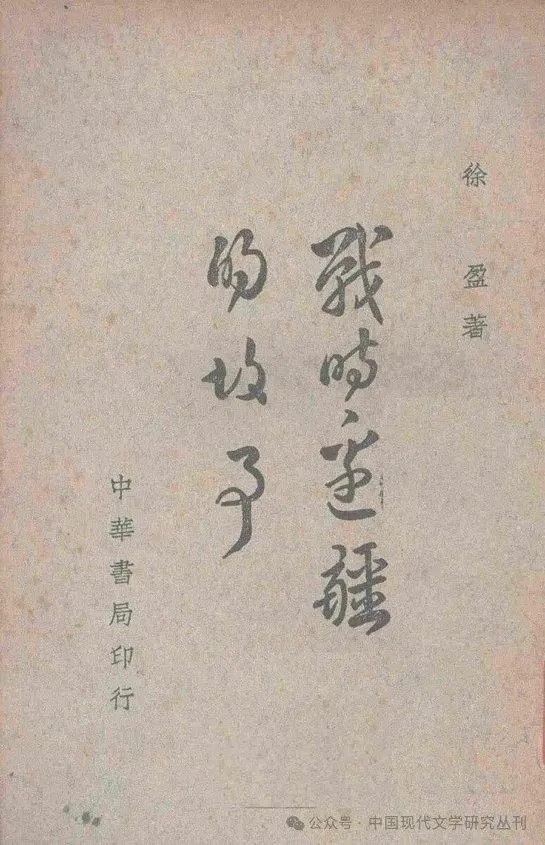 徐盈著
戰時邊疆
的故事
中華書局印行
公众号·中国现代文学研究丛刊